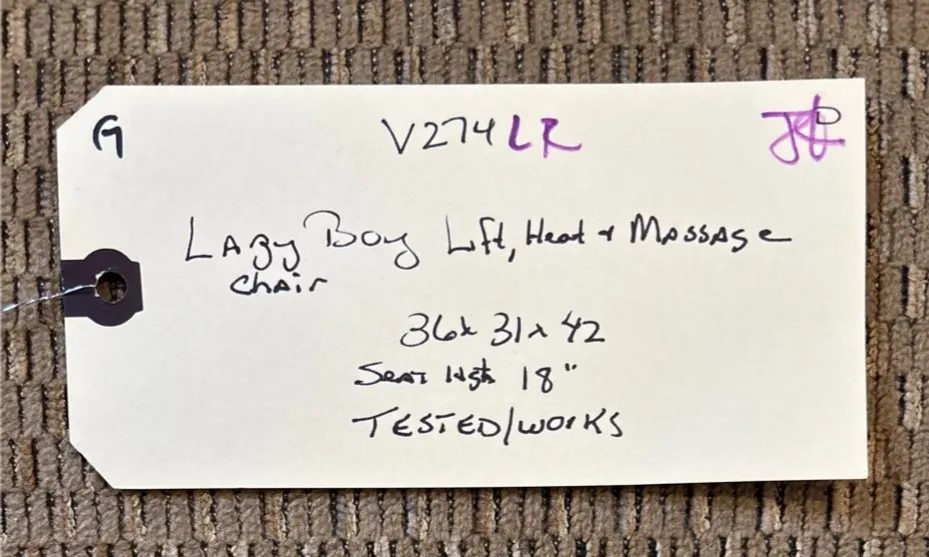 G V274LR
LAzy Boy Lift, Heat + MASSAge
ChAir
36x 31x 42
SeAT Hgh 18"
TESTED/WOrKS